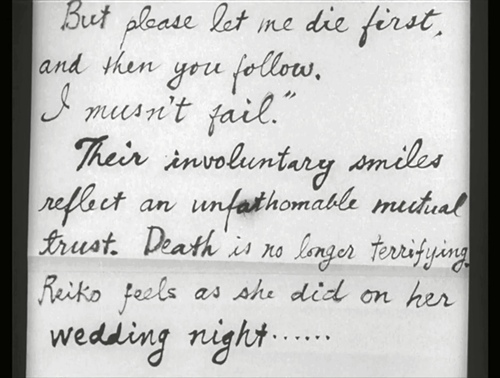 But please let me die first,
and then you follow.
I musn't fail."
Their involuntary smiles
reflect an unfathomable mutual
trust. Death is no longer terrifying.
Reiko feels as she did on her
wedding night......